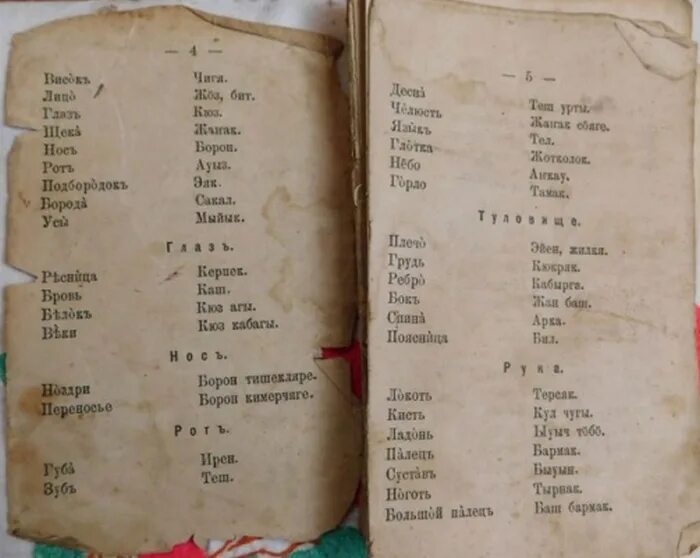 — 4 —
Висо̀къ Чигя.
Лицо̀ Жӧз, бит.
Глазъ Кюз.
Щека̀ Жанак.
Носъ Борон.
Ротъ Ауыз.
Подборо̀докъ Эяк.
Борода̀ Сакал.
Усы̀ Мыйык.
Глазъ.
Рѣснѝца Керпек.
Бровь Каш.
Бѣло̀къ Кюз агы.
Вѣ̀ки Кюз кабагы.
Носъ.
Но̀здри Борон тишекляре.
Перено̀сье Борон кимерчяге.
Ротъ.
Губа̀ Ирен.
Зубъ Теш.
— 5 —
Десна̀ Теш урты.
Чѐлюсть Жанак сӧяге.
Язы̀къ Тел.
Гло̀тка Жотколок.
Нё̀бо Анкау.
Го̀рло Тамак.
Туловище.
Плечо̀ Эйен, жилкя.
Грудь Кюкряк.
Ребро̀ Кабырга.
Бокъ Жан баш.
Спина̀ Арка.
Пояснѝца Бил.
Рука.
Ло̀коть Терсяк.
Кисть Кул чугы.
Ладо̀нь Ыуыч тӧбӧ.
Па̀лецъ Бармак.
Суста̀въ Быуын.
Но̀готь Тырнак.
Большо̀й па̀лецъ Баш бармак.